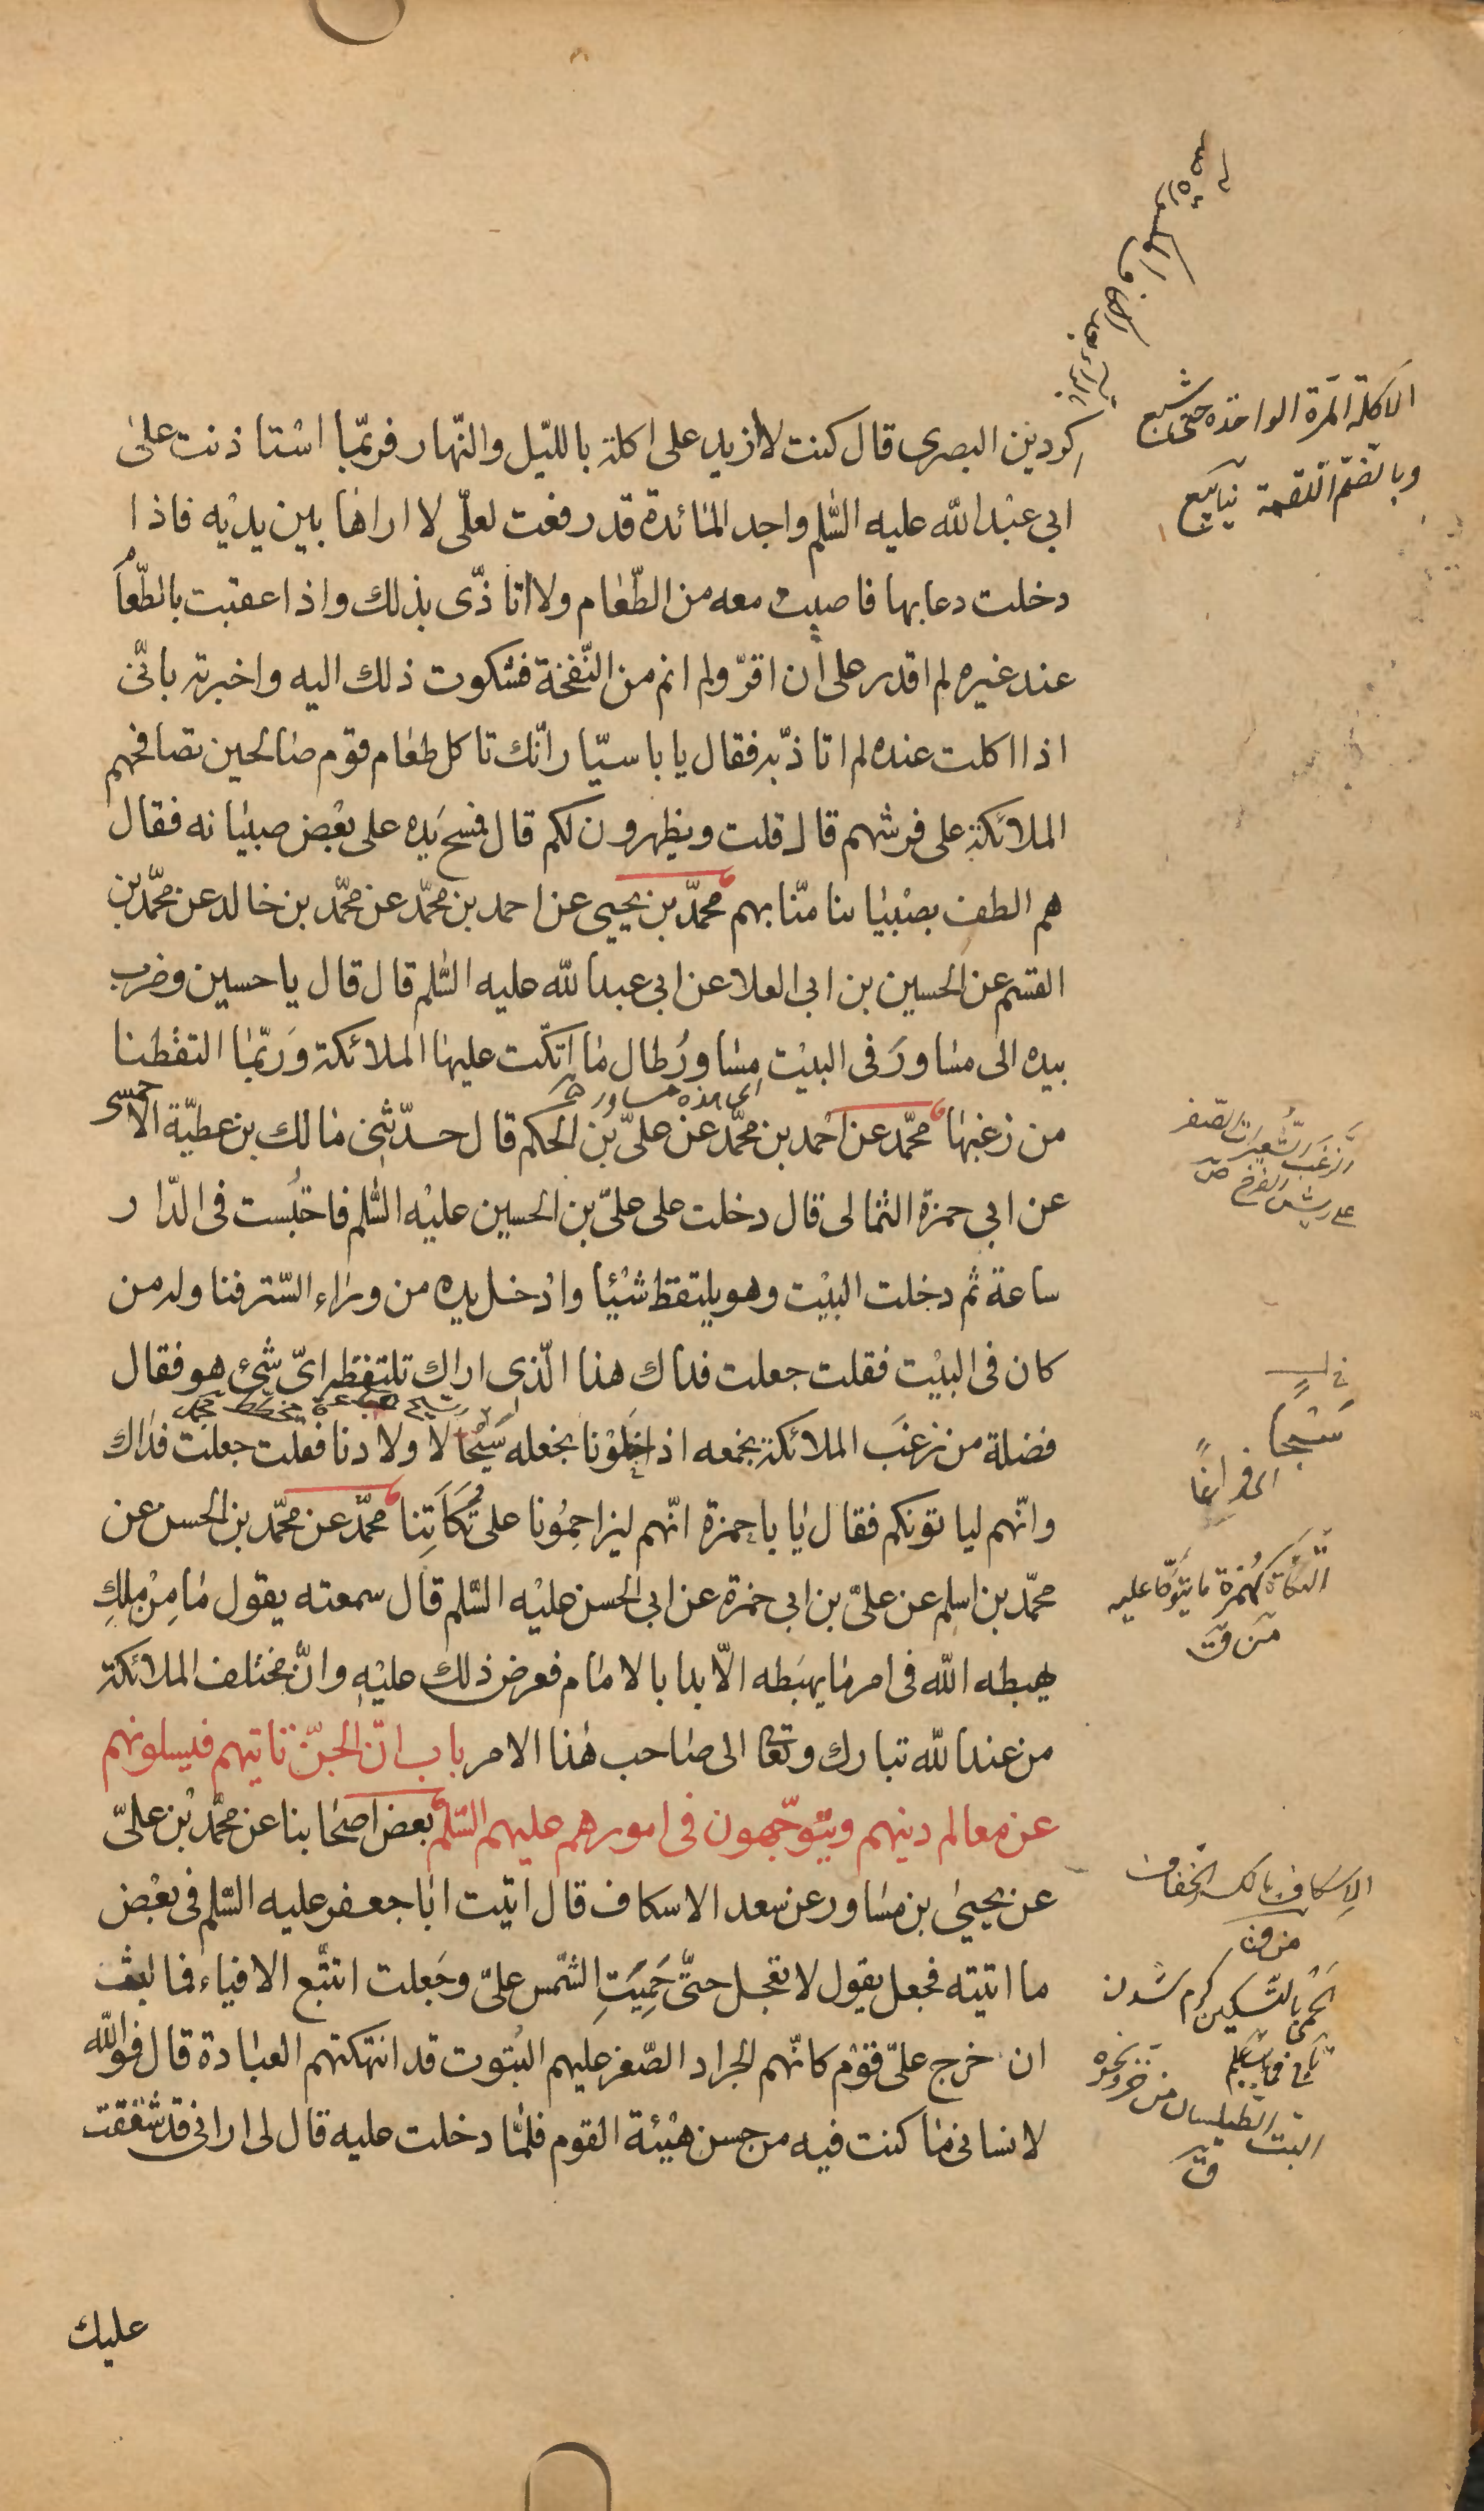 الاكلة المرة الواحدة حتى شبع
وبالضم اللقمة
كردين البصرى قال كنت لا ازيد على اكلة بالليل والنّهار فربّما استاذنت على
ابي عبد الله عليه السّلم واجد المائدة قد رفعت لعلّى لا اراها بين يديه فاذا
دخلت دعا بها فاصيب معه من الطّعام ولا اتاذّى بذلك واذا عقبت بالطّعام
عند غيره لم اقدر على أن اقرّ ولم انم من النّفخة فشكوت ذلك اليه واخبرته بانّى
اذا اكلت عنده لم اتاذّ به فقال يا با سيّار انّك تاكل طعام قوم صالحين تصافحهم
الملائكة على فرشهم قال قلت ويظهرون لكم قال فمسح يده على بعض صبيانه فقال
هم الطف بصبياننا منّا بهم محمّد بن يحيى عن احمد بن محمّد عن محمّد بن خالد عن محمّد بن
القسم عن الحسين بن ابى العلا عن ابى عبد الله عليه السّلم قال قال يا حسين وضرب
بيده الى مساور فى البيت مساور طال ما اتّكت عليها الملائكة وربّما التقطنا
اى هذه مساور
من زغبها محمّد عن احمد بن محمّد عن علىّ بن الحكم قال حدّثنى مالك بن عطيّة الاحمسى
الزغب الشعيرات الصفر
على ريش الفرخ ص
عن ابي حمزة الثمالى قال دخلت على علىّ بن الحسين عليه السّلم فاحتبست فى الدّار
ساعة ثم دخلت البيت وهو يلتقط شيئا وادخل يده من وراء السّتر فناوله من
كان فى البيت فقلت جعلت فداك هذا الّذى اراك تلتقطه اىّ شىء هو فقال
فضلة من زغب الملائكة نجمعه اذا خلونا نجعله سيحا لاولادنا فقلت جعلت فداك
سَبْحاً
اى فراغاً
وانّهم لياتونكم فقال يا با حمزة انّهم ليزاحمونا على تُكَاَتِنا محمّد عن محمّد بن الحسن عن
محمّد بن اسلم عن علىّ بن ابى حمزة عن ابى الحسن عليه السّلم قال سمعته يقول ما مِنْ ملكٍ
التكاة كهمزة ما يتوكا عليه
يهبطه الله فى امر ما يهبطه الّا بدا بالامام فعرض ذلك عليه وانّ مختلف الملائكة
من عند الله تبارك وتعا الى صاحب هذا الامر باب انّ الجنّ تاتيهم فيسلونهم
عن معالم دينهم ويتوجّهون فى امورهم عليهم السّلم بعض اصحابنا عن محمّد بن علىّ
عن يحيى بن مساور عن سعد الاسكاف قال اتيت ابا جعفر عليه السّلم فى بعض
الاسكاف بالكسر الخفاف
ما اتيته فجعل يقول لا تعجل حتّى حَمِيَتِ الشّمس علىّ وجعلت اتتبّع الافياء فما لبث
الحمى بالتسكين كرم شدن
ان خرج علىّ قوم كانّهم الجراد الصّفر عليهم البتوت قد انتهكتهم العبادة قال فو الله
لانسانى ما كنت فيه من حسن هيئة القوم فلمّا دخلت عليه قال لى ارانى قد شققت
البت الطيلسان من خز ونحوه
ق
عليك